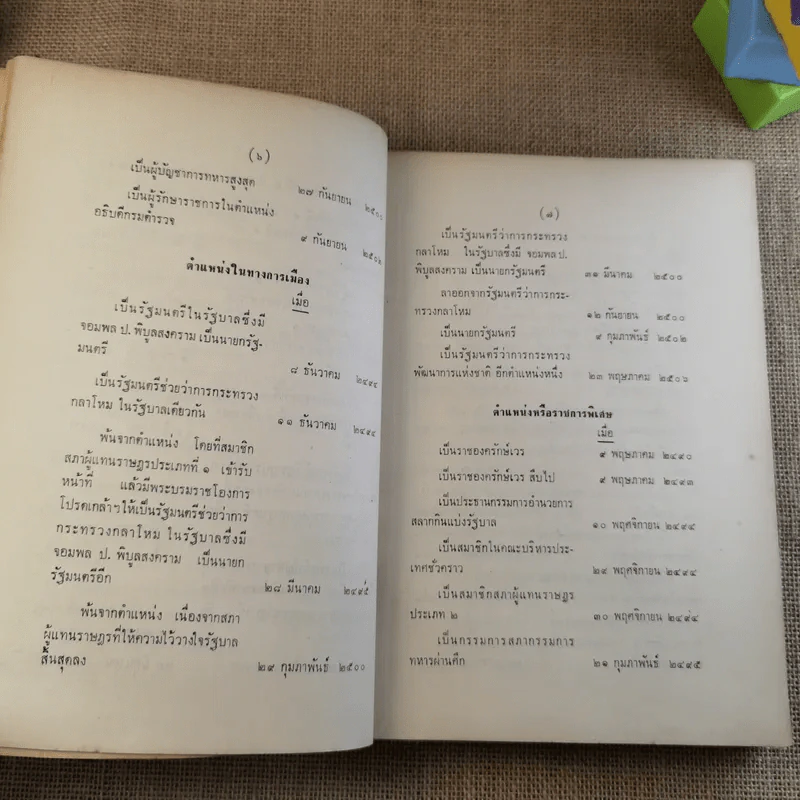 (๖)
เป็นผู้บัญชาการทหารสูงสุด
๒๗ กันยายน ๒๕๐๐
เป็นผู้รักษาราชการในตำแหน่ง
อธิบดีกรมตำรวจ
๙ กันยายน ๒๕๐๒
ตำแหน่งในทางการเมือง
เมื่อ
เป็นรัฐมนตรีในรัฐบาลซึ่งมี
จอมพล ป. พิบูลสงคราม เป็นนายกรัฐ-
มนตรี
๘ ธันวาคม ๒๔๙๔
เป็นรัฐมนตรีช่วยว่าการกระทรวง
กลาโหม ในรัฐบาลเดียวกัน
๑๑ ธันวาคม ๒๔๙๔
พ้นจากตำแหน่ง โดยที่สมาชิก
สภาผู้แทนราษฎรประเภทที่ ๑ เข้ารับ
หน้าที่ แล้วมีพระบรมราชโองการ
โปรดเกล้าฯให้เป็นรัฐมนตรีช่วยว่าการ
กระทรวงกลาโหม ในรัฐบาลซึ่งมี
จอมพล ป. พิบูลสงคราม เป็นนายก
รัฐมนตรีอีก
๒๘ มีนาคม ๒๔๙๕
พ้นจากตำแหน่ง เนื่องจากสภา
ผู้แทนราษฎรที่ให้ความไว้วางใจรัฐบาล
สิ้นสุดลง
๒๙ กุมภาพันธ์ ๒๕๐๐
เป็นรัฐมนตรีว่าการกระทรวง
กลาโหม ในรัฐบาลซึ่งมี จอมพล ป.
พิบูลสงคราม เป็นนายกรัฐมนตรี ๓๑ มีนาคม ๒๕๐๐
ลาออกจากรัฐมนตรีว่าการกระ-
ทรวงกลาโหม ๑๒ กันยายน ๒๕๐๐
เป็นนายกรัฐมนตรี ๙ กุมภาพันธ์ ๒๕๐๒
เป็นรัฐมนตรีว่าการกระทรวง
พัฒนาการแห่งชาติ อีกตำแหน่งหนึ่ง ๒๓ พฤษภาคม ๒๕๐๖
ตำแหน่งหรือราชการพิเศษ
เมื่อ
เป็นราชองครักษ์เวร ๙ พฤษภาคม ๒๔๙๐
เป็นราชองครักษ์เวร สืบไป ๙ พฤษภาคม ๒๔๙๓
เป็นประธานกรรมการอำนวยการ
สลากกินแบ่งรัฐบาล ๑๐ พฤศจิกายน ๒๔๙๔
เป็นสมาชิกในคณะบริหารประ-
เทศชั่วคราว ๒๙ พฤศจิกายน ๒๔๙๔
เป็นสมาชิกสภาผู้แทนราษฎร
ประเภท ๒ ๓๐ พฤศจิกายน ๒๔๙๔
เป็นกรรมการสภากรรมการ
ทหารผ่านศึก ๒๑ กุมภาพันธ์ ๒๔๙๕